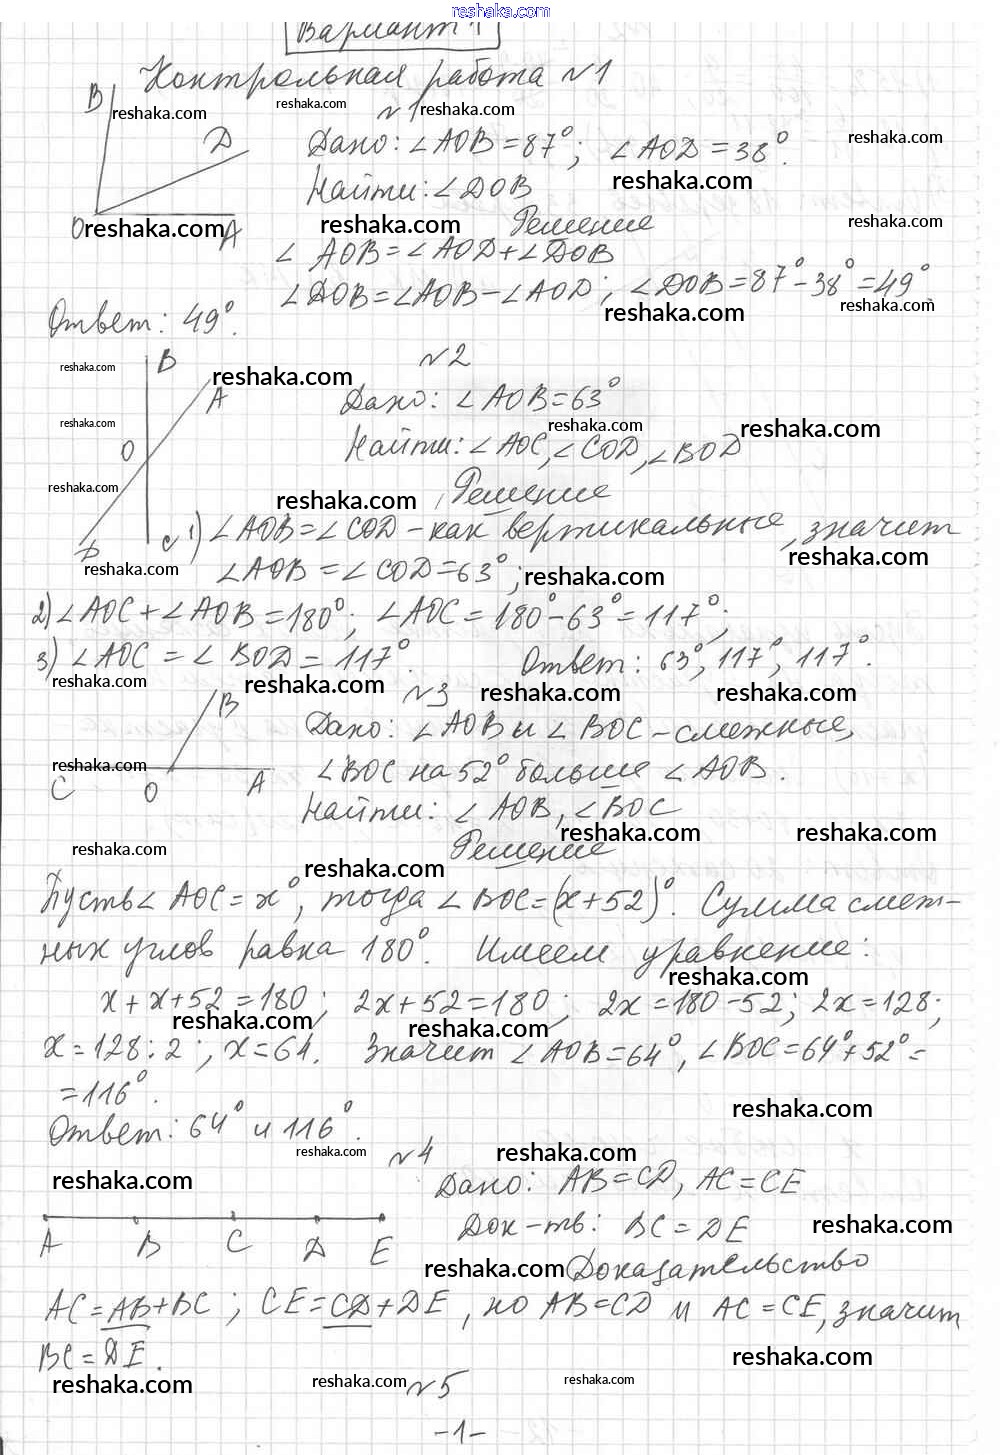 reshaka.com
Вариант 1
Контрольная работа №1
№1
B
D
O
A
Дано: ∠AOB = 87°; ∠AOD = 38°.
Найти: ∠DOB
Решение
∠AOB = ∠AOD + ∠DOB
∠DOB = ∠AOB − ∠AOD; ∠DOB = 87° − 38° = 49°
Ответ: 49°.
№2
B
A
O
D
C
Дано: ∠AOB = 63°
Найти: ∠AOC, ∠COD, ∠BOD
Решение
1) ∠AOB = ∠COD - как вертикальные, значит
∠AOB = ∠COD = 63°;
2) ∠AOC + ∠AOB = 180°; ∠AOC = 180° − 63° = 117°;
3) ∠AOC = ∠BOD = 117°. Ответ: 63°, 117°, 117°.
№3
B
C
O
A
Дано: ∠AOB и ∠BOC - смежные,
∠BOC на 52° больше ∠AOB.
Найти: ∠AOB, ∠BOC
Решение
Пусть ∠AOC = x°, тогда ∠BOC = (x + 52)°. Сумма смеж-
ных углов равна 180°. Имеем уравнение:
x + x + 52 = 180; 2x + 52 = 180; 2x = 180 − 52; 2x = 128;
x = 128 : 2; x = 64. Значит ∠AOB = 64°, ∠BOC = 64° + 52° =
= 116°.
Ответ: 64° и 116°.
№4
Дано: AB = CD, AC = CE
Док-ть: BC = DE
A B C D E
Доказательство
AC = AB + BC; CE = CD + DE, но AB = CD и AC = CE, значит
BC = DE.
№5
-1-